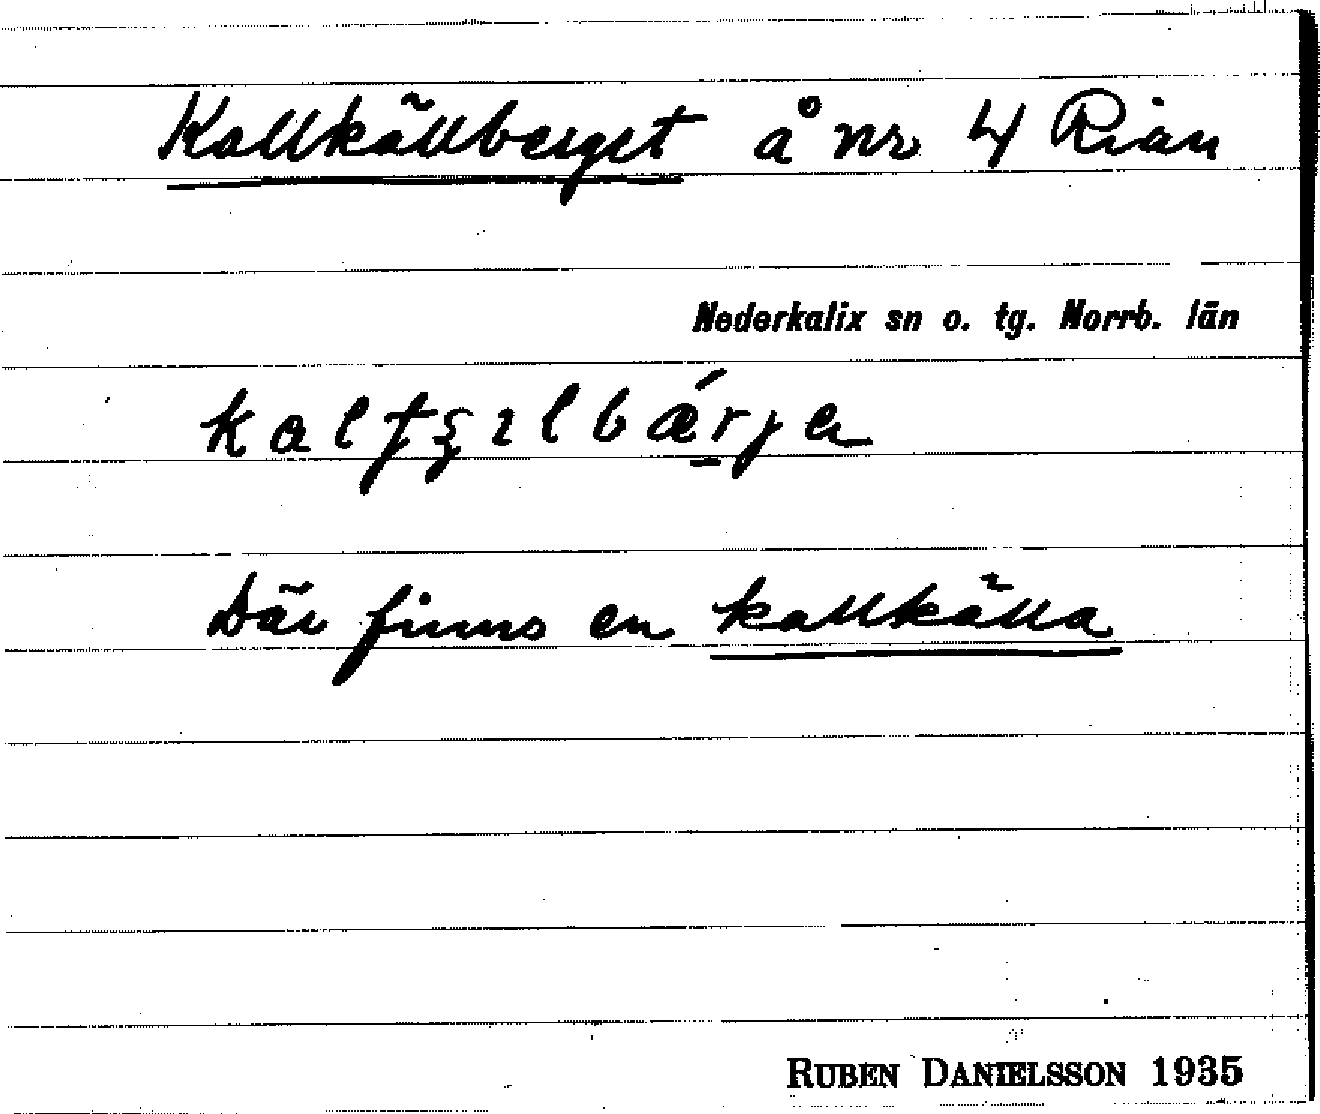 Kallkällberget å nr 4 Rian
Nederkalix sn o. tg. Norrb. län
Där finns en kallkälla
RUBEN DANIELSSON 1935